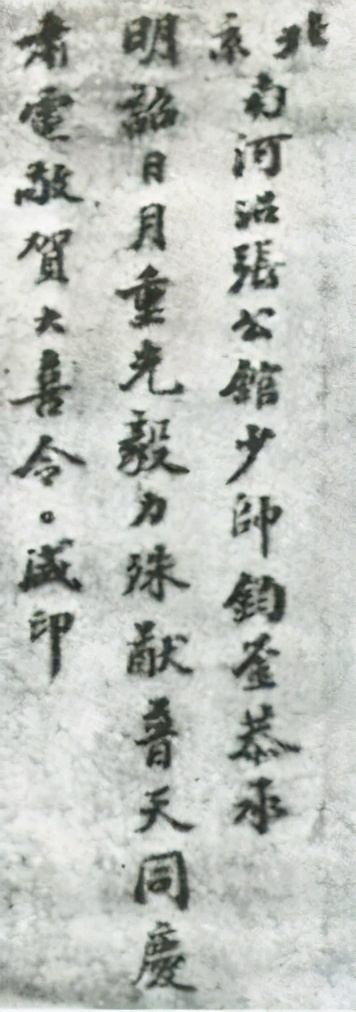 北京
南河沿張公館少帥鈞鉴恭承
明詔日月重光毅力殊猷普天同慶
肅電敬賀大喜令。威印